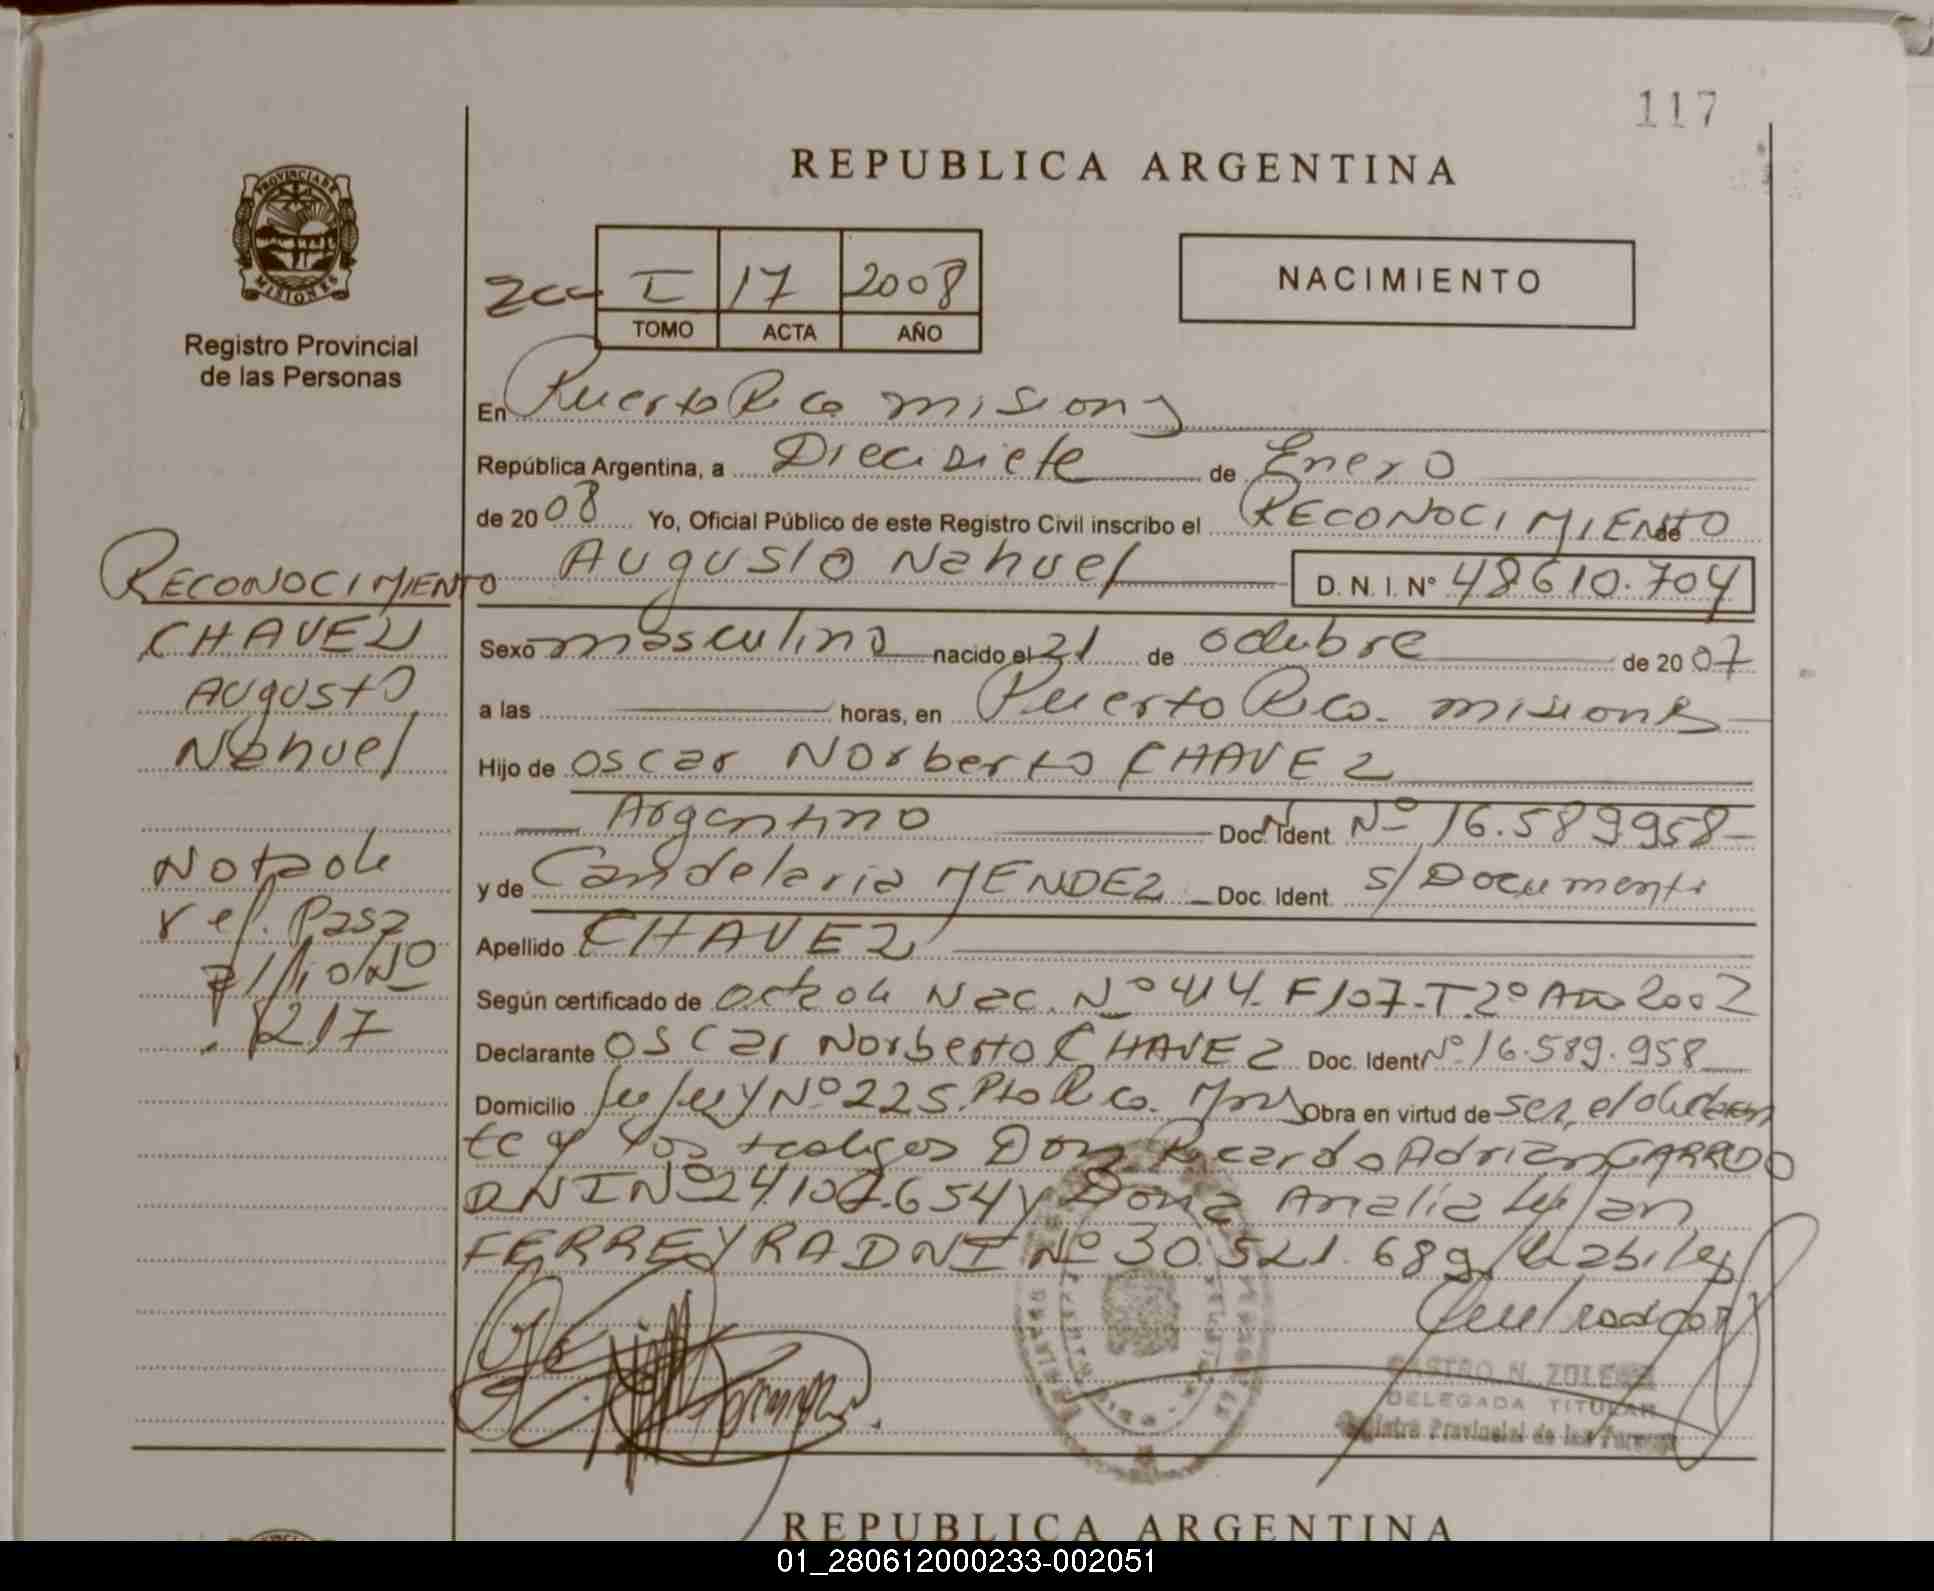 117
REPUBLICA ARGENTINA
PROVINCIA DE
MISIONES
Registro Provincial
de las Personas
I 17 2008
TOMO ACTA AÑO
NACIMIENTO
En Puerto Rico misiones
República Argentina, a Diecisiete de Enero
de 2008 Yo, Oficial Público de este Registro Civil inscribo el RECONOCIMIENTO de
Augusto Nahuel D. N. I. N° 48610.704
Sexo masculino nacido el 21 de octubre de 2007
a las horas, en Puerto Rico. misiones
Hijo de Oscar Norberto CHAVEZ
Argentino Doc. Ident. Nº 16.589958
y de Candelaria MENDEZ Doc. Ident. S/Documento
Apellido CHAVEZ
Según certificado de Acta de Nac. Nº 414. F107-T.2º Año 2007
Declarante Oscar Norberto CHAVEZ Doc. Ident Nº 16.589.958
Domicilio Jujuy Nº 225. Pto Rico. Mnes Obra en virtud de ser, el
te y los testigos Don Ricardo Adrian GARRIDO
DNI Nº 24.107.654 y Doña Analia Lujan
FERREYRA DNI Nº 30.521.689
RECONOCIMIENTO
CHAVEZ
Augusto
Nahuel
Nota de
ref. Pasa
Nº
217
CASTRO N. ZULEMA
DELEGADA TITULAR
Registro Provincial de las Personas
REPUBLICA ARGENTINA
01_280612000233-002051